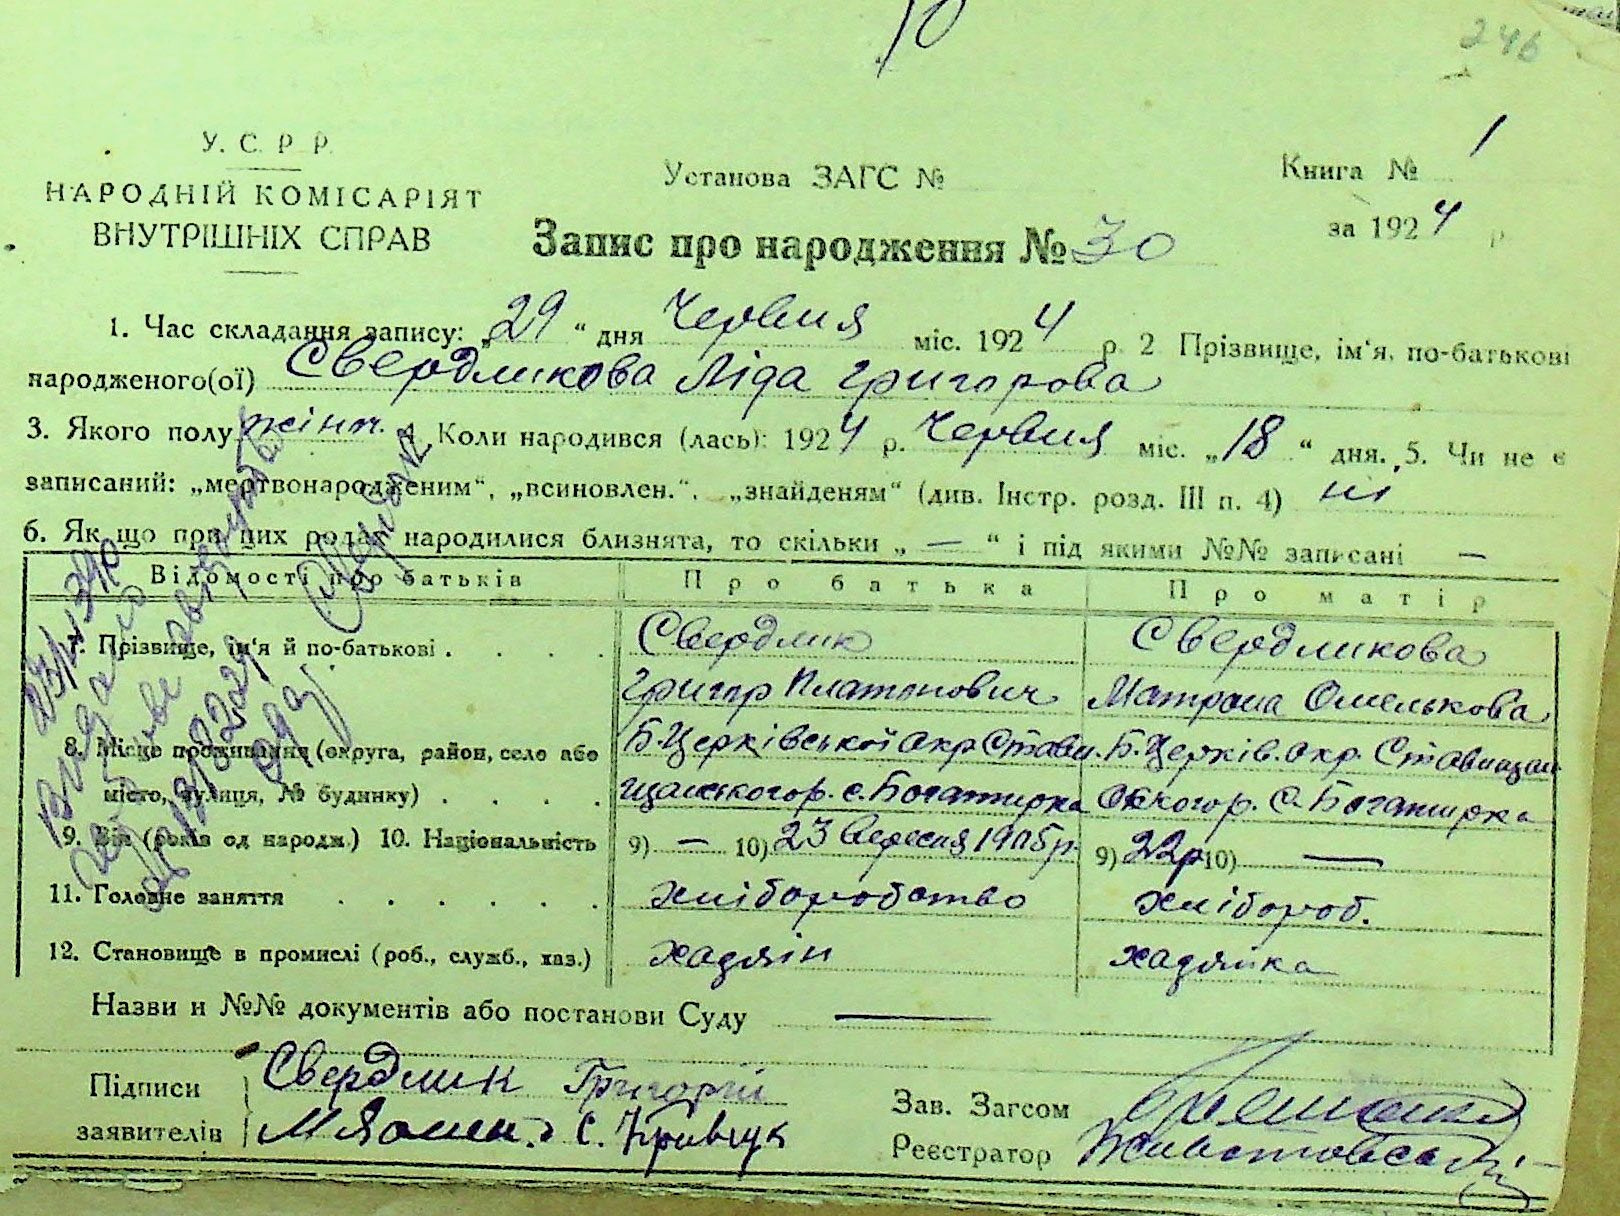 10
246
У. С. Р. Р.
НАРОДНІЙ КОМІСАРІЯТ
ВНУТРІШНІХ СПРАВ
Установа ЗАГС №
Книга № 1
за 1924 р
Запис про народження № 30
1. Час складання запису: „29“ дня Червня міс. 1924 р. 2 Прізвище, ім‘я, по-батькові
народженого(ої) Свердликова Ліда Григорова
3. Якого полу жіноч. 4. Коли народився (лась): 1924 р. Червня міс. „18“ дня. 5. Чи не є
записаний: „мертвонародженим“, „всиновлен.“, „знайденям“ (див. Інстр. розд. III п. 4) ні
6. Як що при цих родах народилися близнята, то скільки „ — “ і під якими №№ записані —
Відомості про батьків Про батька Про матір
7. Прізвище, ім‘я й по-батькові . . . . Свердлик Свердликова
Григор Платонович Матрона Омелькова
8. Місце проживання (округа, район, село або Б.Церківської Окр Стави Б.Церків. Окр. Ставищан
місто, вулиця, № будинку) . . . . щанського р. с. Богатирка ського р. С. Богатирка
9. Вік (років од народж.) 10. Національність 9) — 10) 23 Вересня 1905 р. 9) 22 р 10) —
11. Головне заняття . . . . . . хліборобство хлібороб.
12. Становище в промислі (роб., служб., хаз.) хадзяін хадзяйка
Назви и №№ документів або постанови Суду —
Підписи Свердлик Григорій
заявителів С. Кравчук
Зав. Загсом
Реєстратор